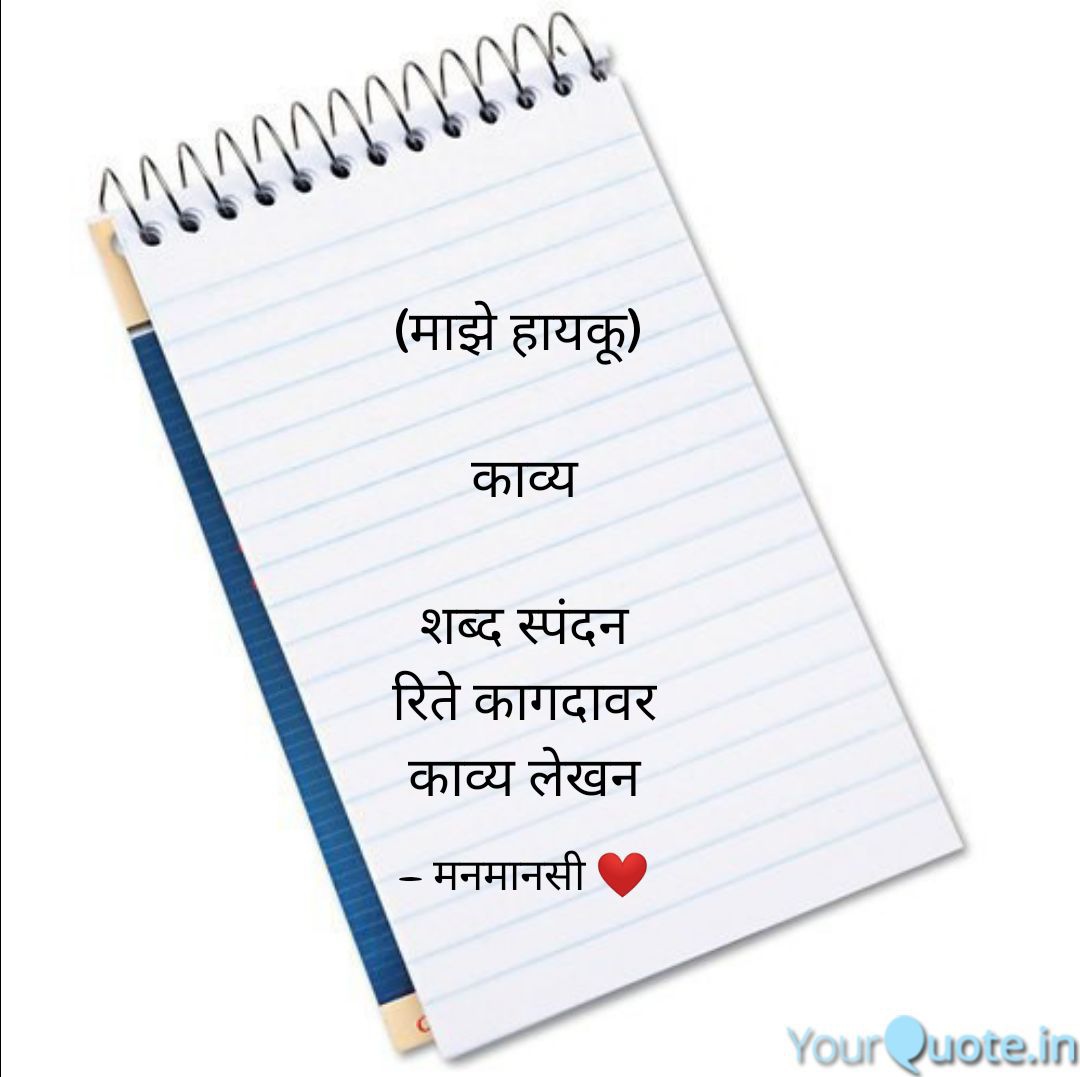 (माझे हायकू)
काव्य
शब्द स्पंदन
रिते कागदावर
काव्य लेखन
– मनमानसी ❤️
YourQuote.in